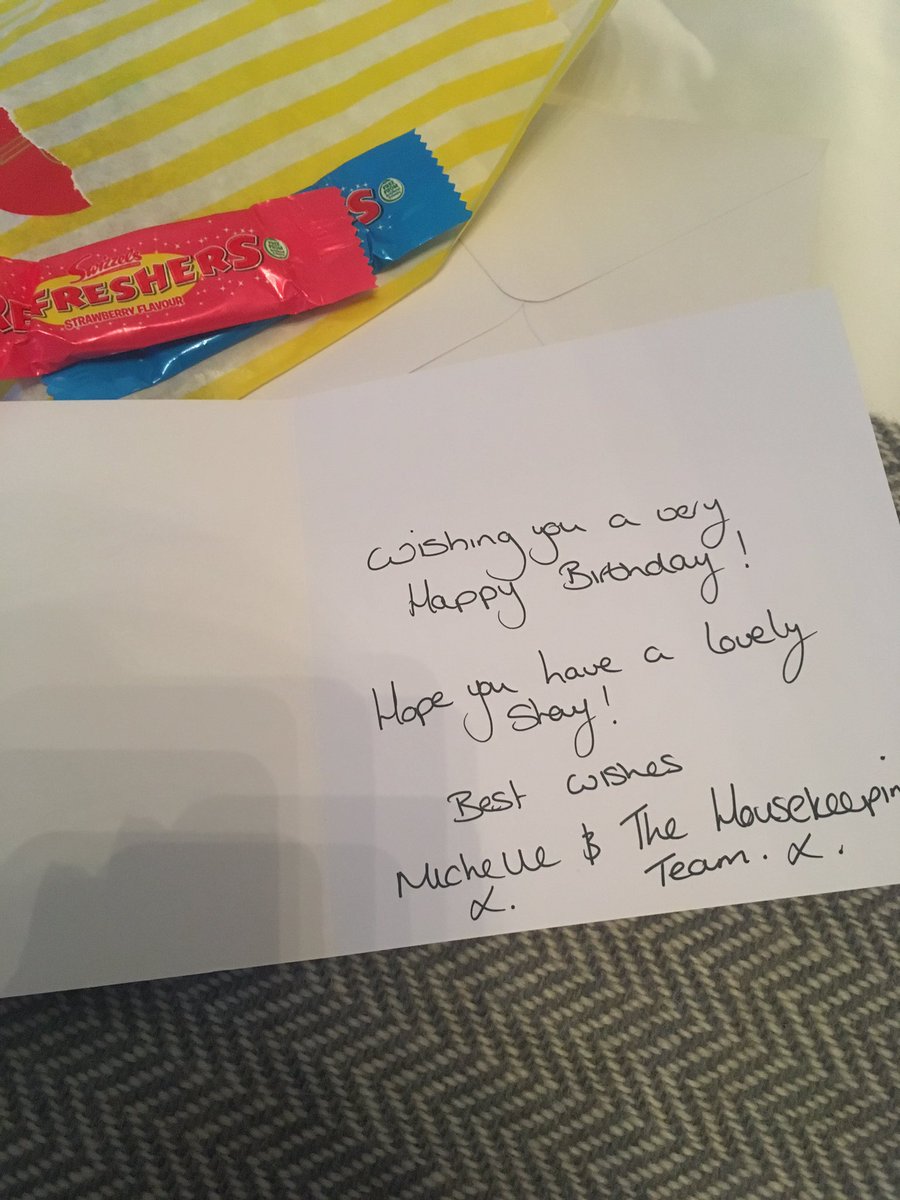 Swizzels
REFRESHERS
STRAWBERRY FLAVOUR
RS
Wishing you a very
Happy Birthday!
Hope you have a lovely
Stay!
Best wishes
Michelle & The Housekeepin
x. Team. x.